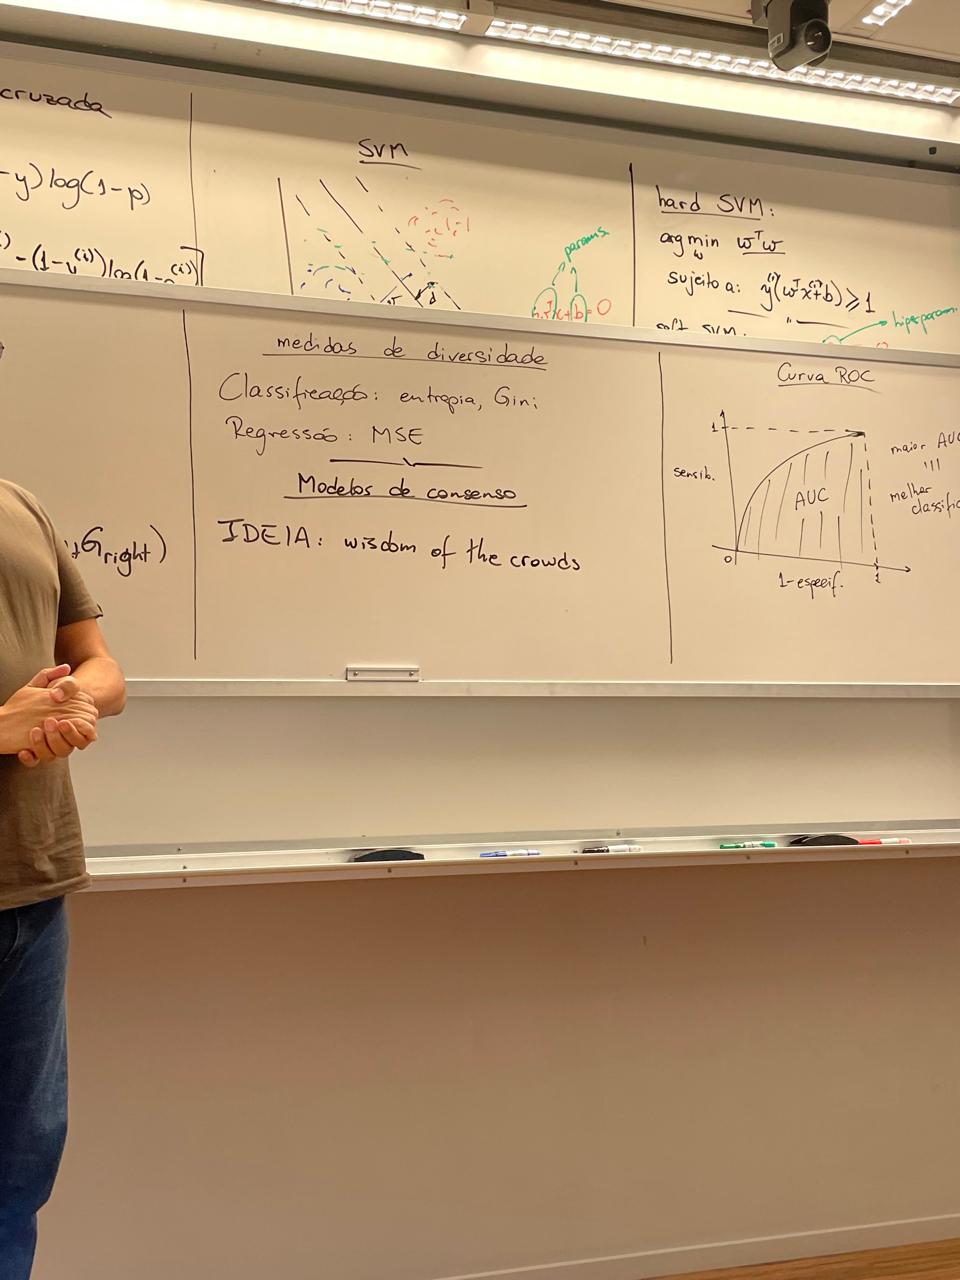 cruzada
-y) log(1-p)
-(1-y⁽ⁱ⁾)log(1-
SVM
params.
x+b=0
d
hard SVM:
arg min wᵀw
w
sujeito a: y⁽ⁱ⁾(wᵀx⁽ⁱ⁾+b) ≥ 1
soft SVM.
hiperparam.
G right)
medidas de diversidade
Classificação: entropia, Gini
Regressão: MSE
Modelos de consenso
IDEIA: wisdom of the crowds
Curva ROC
1
sensib.
AUC
0
1-especif.
1
maior AUC
melhor
classific